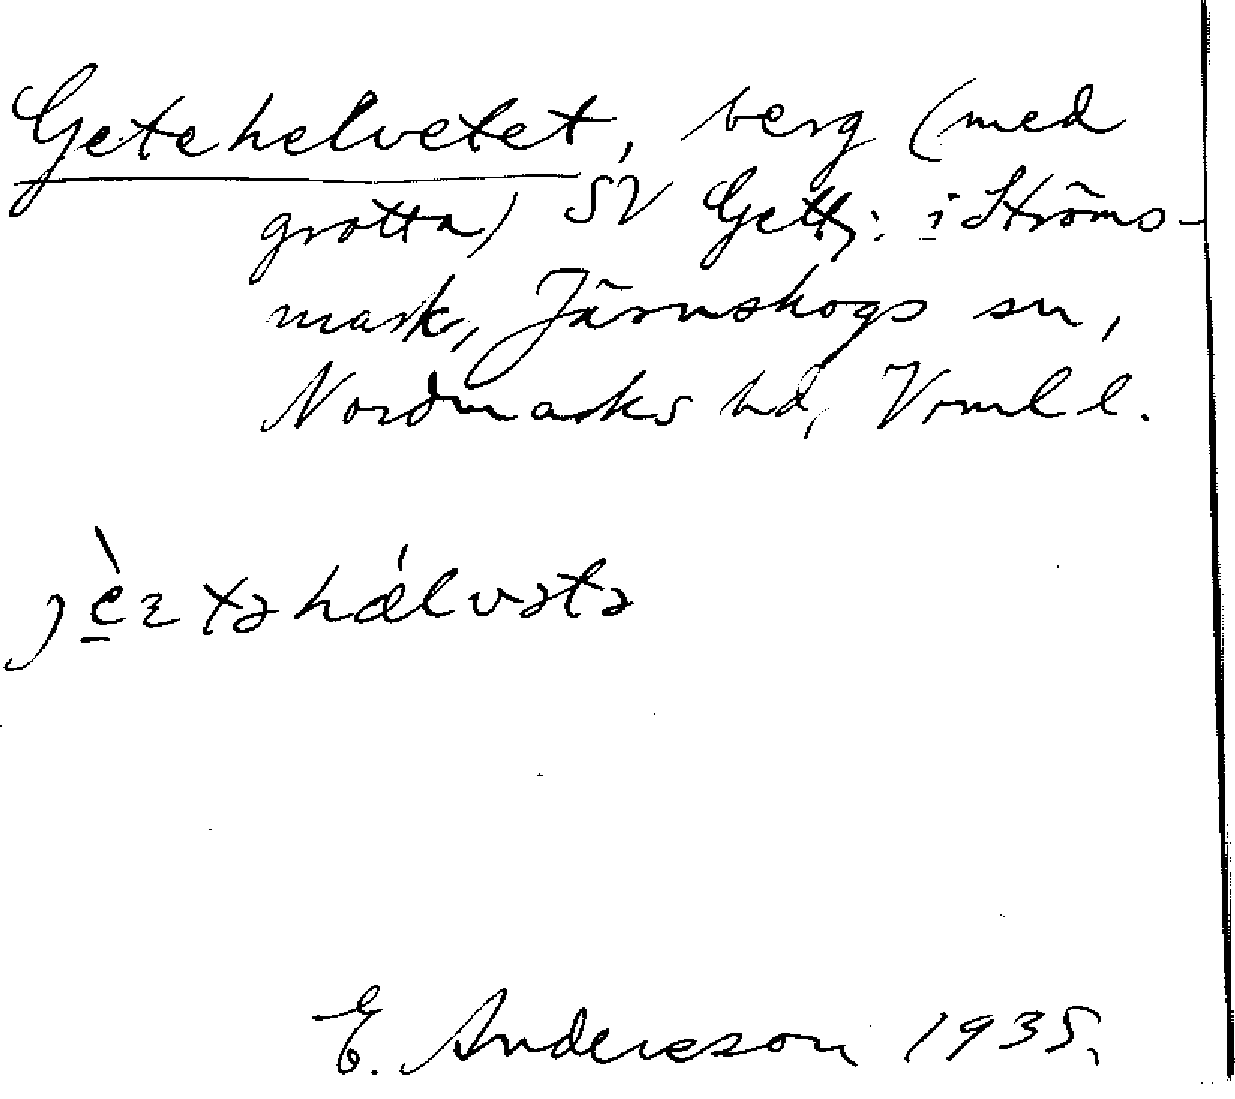 Getehelvetet, berg (med
grotta) SV i Ströms-
mark, Järnskogs sn,
Nordmarks hd, Vrml l.
E. Andersson 1935.